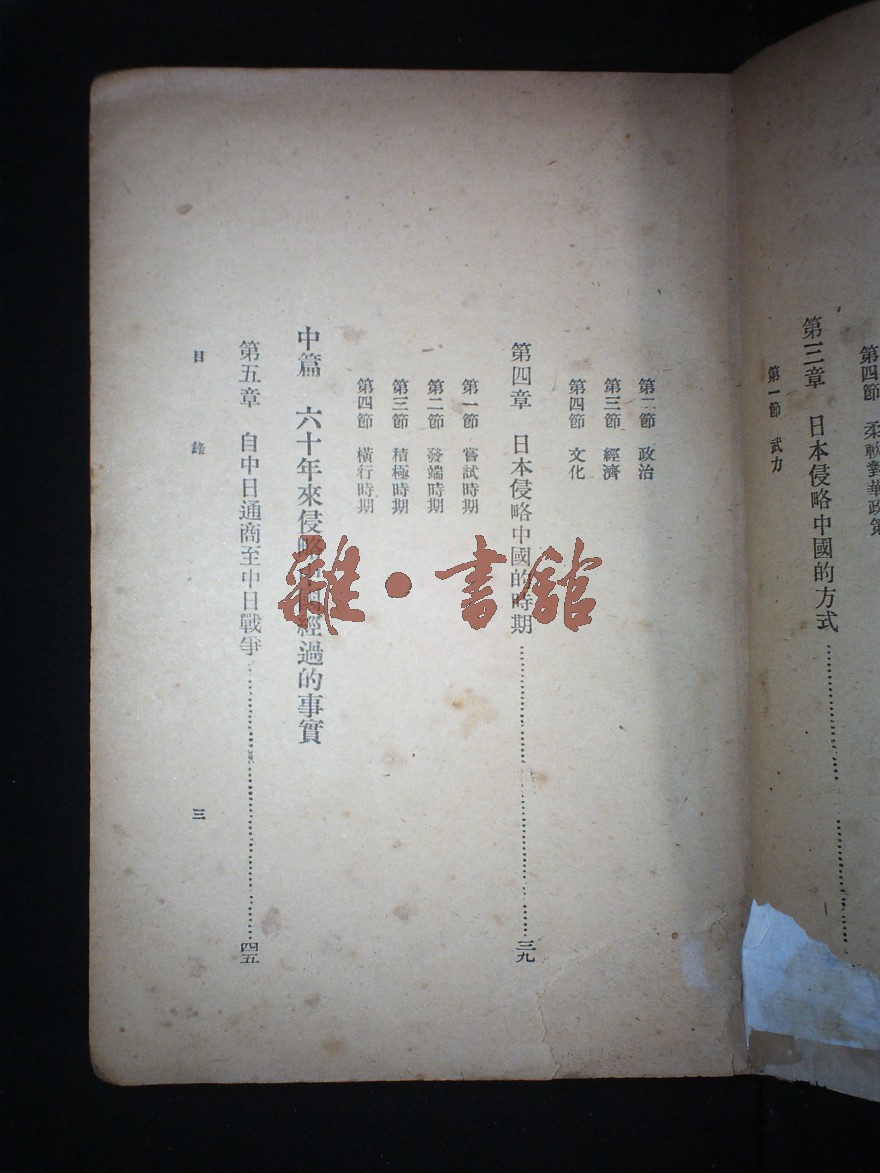 第四節　柔軟對華政策
第三章　日本侵略中國的方式
第一節　武力
第二節　政治
第三節　經濟
第四節　文化
第四章　日本侵略中國的時期……三九
第一節　嘗試時期
第二節　發端時期
第三節　積極時期
第四節　橫行時期
中篇　六十年來侵略中國經過的事實
第五章　自中日通商至中日戰爭……四五
目錄　三
雜·書館